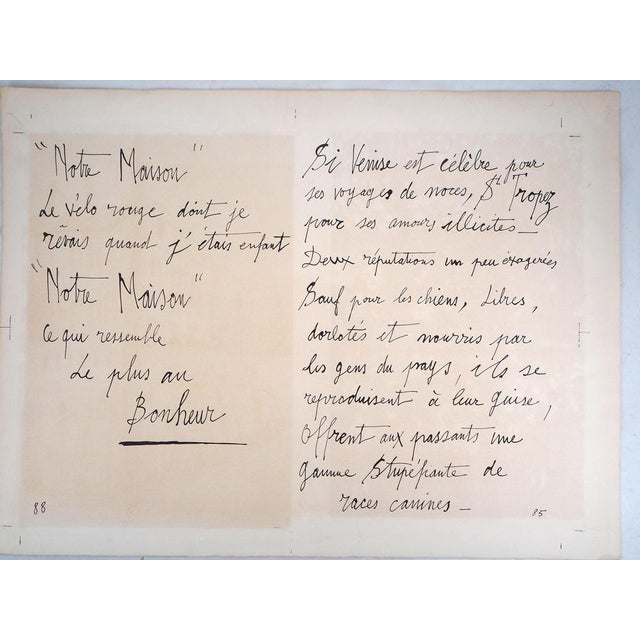 "Notre Maison"
Le vélo rouge dont je
rêvais quand j'étais enfant
"Notre Maison"
Ce qui ressemble
Le plus au
Bonheur
88
Si Venise est célèbre pour
ses voyages de noces, St Tropez
pour ses amours illicites_
Deux réputations un peu éxagerées
Sauf pour les chiens, Libres,
dorlotés et nourris par
les gens du pays, ils se
reproduisent à leur guise,
offrent aux passants une
gamme stupéfiante de
races canines_
85